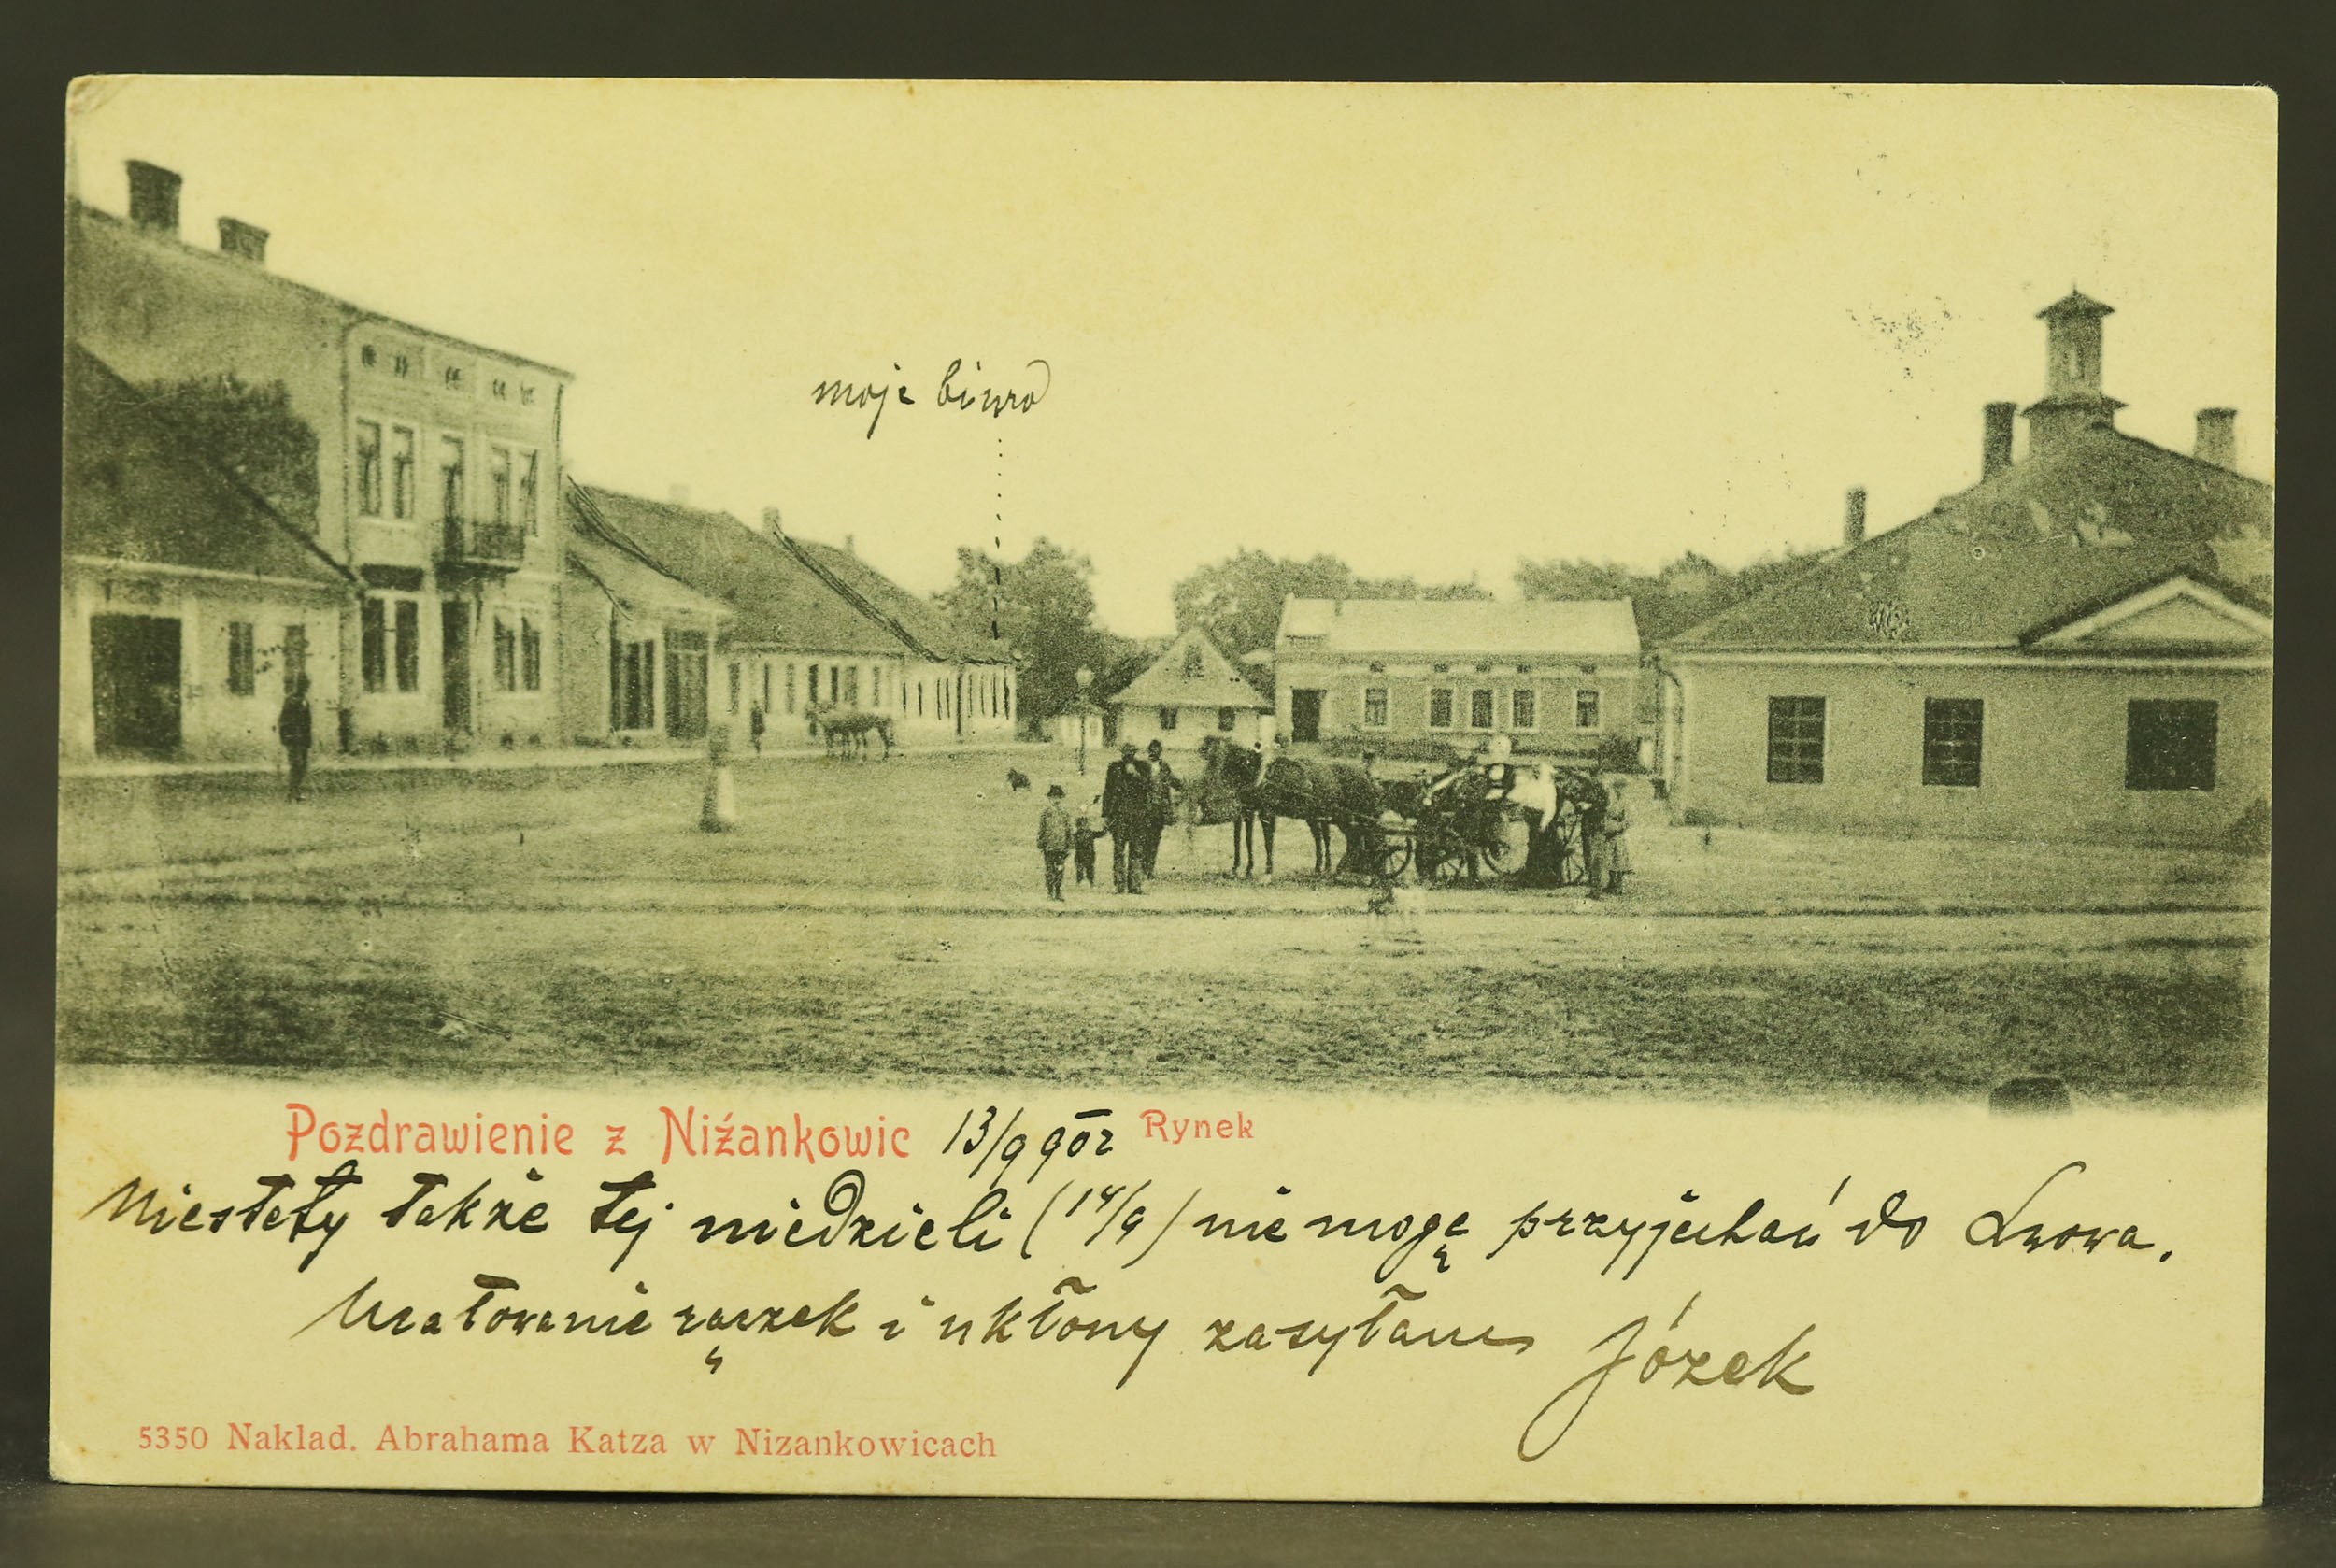 moje biuro
Pozdrawienie z Niźankowic 13/9 902 Rynek
Niestety także tej niedzieli (14/9) nie mogę przyjechać do Lwowa.
Ucałowanie rączek i ukłony zasyłam Józek
5350 Naklad. Abrahama Katza w Nizankowicach